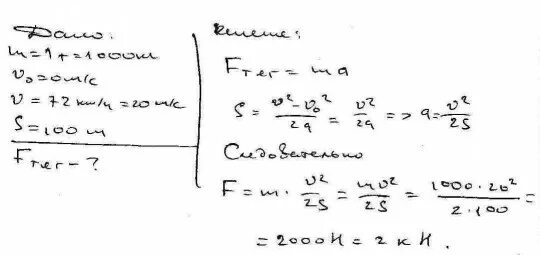 Дано:
m = 1т = 1000кг
v₀ = 0 м/с
v = 72 км/ч = 20 м/с
S = 100 м
Fтяг - ?
Решение:
Fтяг = ma
S = (v² - v₀²)/2a = v²/2a => a = v²/2S
Следовательно
F = m · v²/2S = mv²/2S = (1000 · 20²)/(2 · 100) =
= 2000Н = 2 кН.